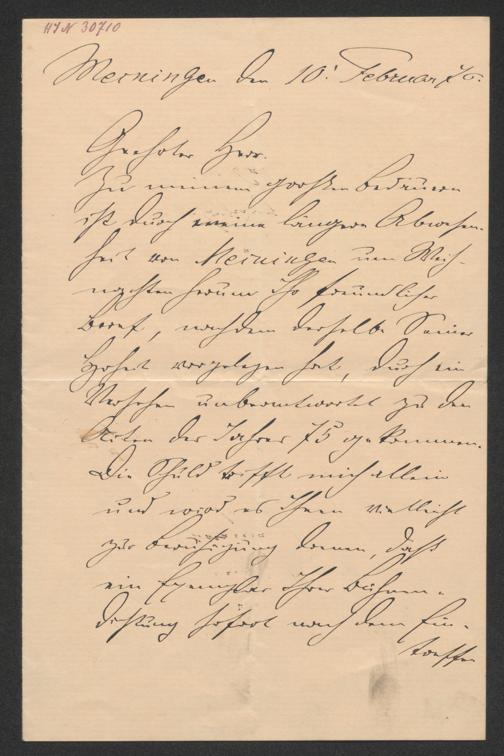 HIN 30710
Meiningen den 10. Februar 76.
Geehrter Herr.
Zu meinem großen Bedauern
ist durch meine längere Abwesen-
heit von Meiningen um Weih-
nachten herum Ihr freundlicher
Brief, nachdem derselbe Seiner
Hoheit vorgelegen hat, durch ein
Versehen unbeantwortet zu den
Akten des Jahres 75 gekommen.
Die Schuld trifft mich allein
und wird es Ihnen vielleicht
zur Beruhigung dienen, daß
ein Exemplar Ihrer Bühnen-
dichtung sofort nach dem Ein-
treffen